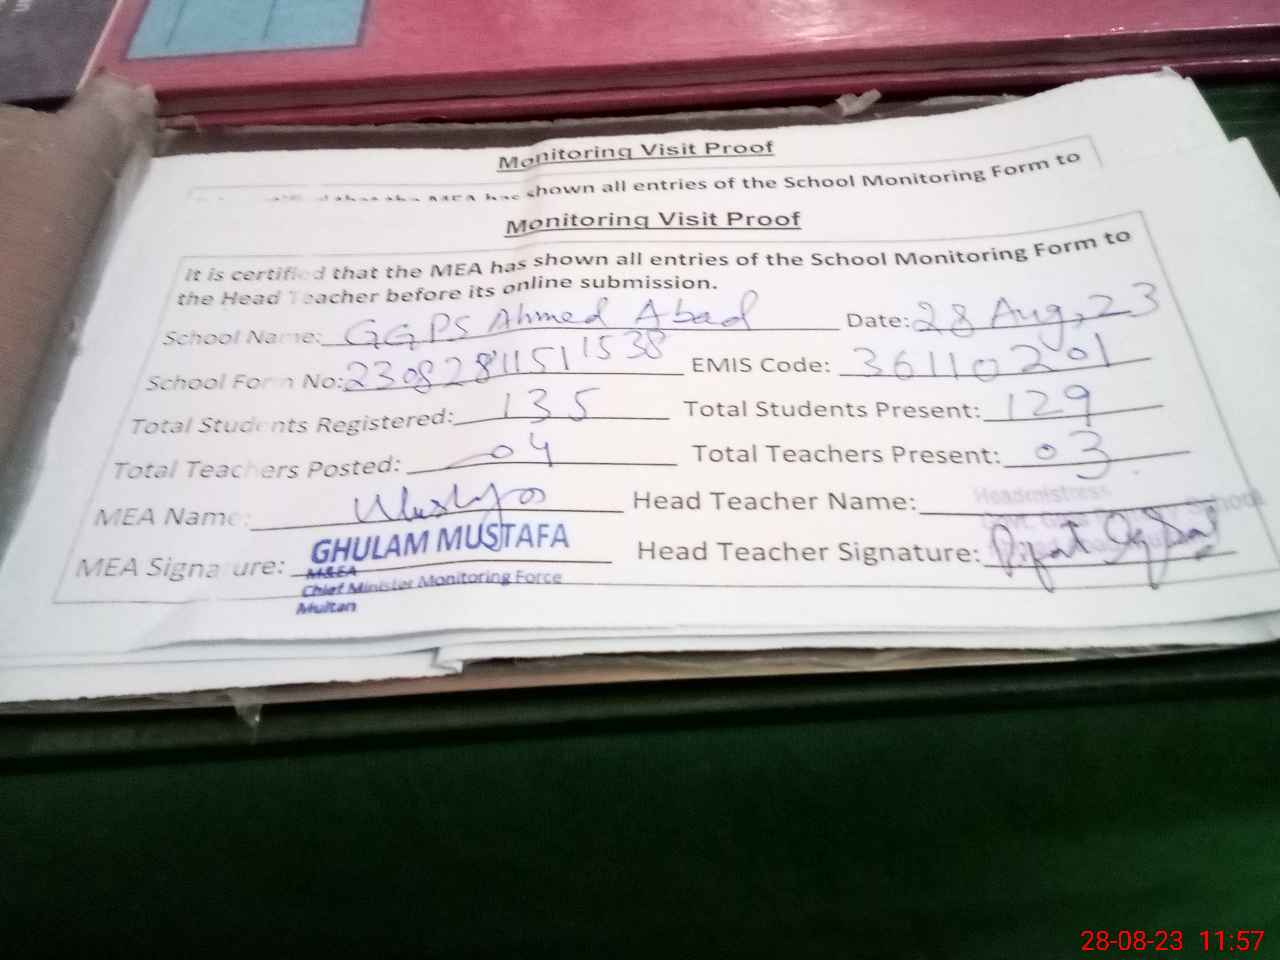 Monitoring Visit Proof
shown all entries of the School Monitoring Form to
Monitoring Visit Proof
It is certified that the MEA has shown all entries of the School Monitoring Form to
the Head Teacher before its online submission.
School Name: GGPS Ahmed Abad Date: 28 Aug, 23
School Form No: 23082811511538 EMIS Code: 36110201
Total Students Registered: 135 Total Students Present: 129
Total Teachers Posted: 04 Total Teachers Present: 03
MEA Name: Head Teacher Name: Headmistress
Govt. Girls School
MEA Signature: GHULAM MUSTAFA Head Teacher Signature: Rifat Iqbal
M&EA
Chief Minister Monitoring Force
Multan
28-08-23 11:57